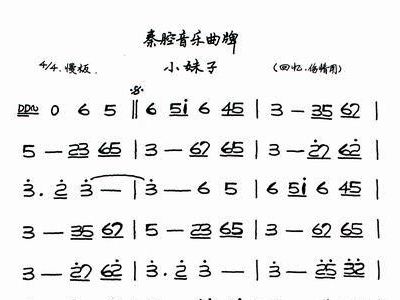 秦腔音乐曲牌
4/4.慢板. 小妹子 (回忆.伤情用)
0 6 5 ‖ 6 5i̇ 6 45 | 3 — 35 62 |
5 — 23 65 | 3 — 62 65 | 3 — 2̇7 62̇ |
3̇. 2̇ 3̇ — | 3̇ — 6 5 | 6 5i̇ 6 45 |
3 — 35 62 | 5 — 23 65 | 3 — 62 65 |
3 — 2̇7 62̇ | 3̇. 2̇ 3̇ — | 3 — 2̇5 3̇2̇ |